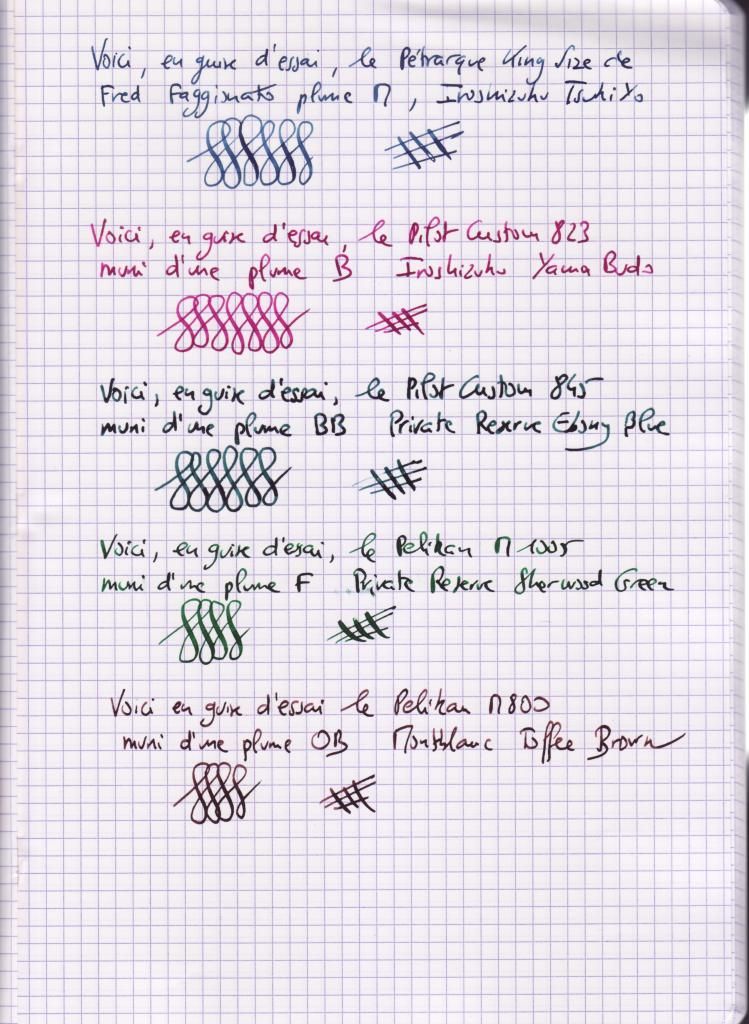 Voici, en guise d'essai, le Pétrarque King Size de
Fred Faggionato plume M, Iroshizuku Tsuki Yo
Voici, en guise d'essai, le Pilot Custom 823
muni d'une plume B Iroshizuku Yama Budo
Voici, en guise d'essai, le Pilot Custom 845
muni d'une plume BB Private Reserve Ebony Blue
Voici, en guise d'essai, le Pelikan M1005
muni d'une plume F Private Reserve Sherwood Green
Voici en guise d'essai le Pelikan M800
muni d'une plume OB Montblanc Toffee Brown